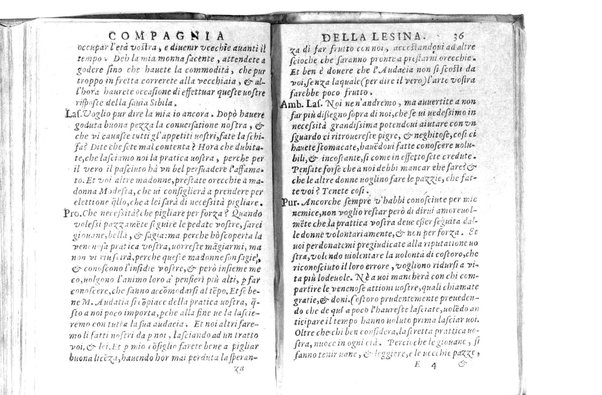 COMPAGNIA
occupar l'età vostra, e diuenir vecchie auanti il
tempo. Deh la mia monna sacente, attendete a
godere sino che hauete la commodità, che pur
troppo in fretta arriuerete alla vecchiaia, & al-
l'hora haurete occasione di effettuar queste uostre
risposte della sauia Sibila.
Las. Voglio pur dire la mia io ancora. Dopò hauere
goduta buona pezza la conuersatione nostra, &
che vi ca uaste tutti gl'appetiti uostri, fate la schi-
fa? Dite che sete mal contenta? Hora che dubita-
te, che lasciamo noi la pratica uostra, perche per
il vero il pasciuto hà vn bel persuadere l'affama-
to. Et voi altre madonne, prestate orecchie a ma-
donna Modesta, che ui consiglierà a prendere per
elettione quello, che a lei sarà di necessità pigliare.
Pro. Che necessità? che pigliare per forza? Quando
volessi pazzamente seguire le pedate vostre, sarei
giouane, bella, & saggia: ma perche hò scoperta la
venenosa pratica vostra, uorreste màgiarmi, ma
non vi riuscirà, perche queste madonne son sagie,
& conoscono l'insidie vostre, & però insieme me
co, uolgono l'animo loro a' pensieri più alti, p far
conoscere, che sanno accomodarsi al tempo. Et se be
ne M. Audatia si compiace della pratica uostra, questo
a noi poco importa, pche alla fine ue la lascie-
remo con tutta la sua audacia. Et noi altri fare-
mo li fatti nostri da p noi. lasciando ad un tratto
voi, & lei. Et p mio consiglio farete bene a pigliar
buona licenza, hauendo hor mai perduta la speran-
za
DELLA LESINA. 36
za di far frutto con noi, accostandoui ad altre
scioche che saranno pronte a prestarui orecchie.
Et ben è douere che l'Audacia non si scosti da
voi, senza laquale (per dire il vero) l'arte vostra
farebbe poco frutto.
Amb. Las. Noi ne n'andremo, ma auuertite a non
far più disegno sopra di noi, che se ui uedessimo in
necessità grandissima potendoui aiutare con vn
sguardo vi ritrouereste pigre, & neghitose, così ci
hauete stomacate, hauédoui fatte conoscere volu-
bili, & incostante, si come in effetto sete credute.
Pensate forse che a noi debbi mancar che fare? &
che le altre donne uoglino fare le pazzie, che fat-
te voi? Tenete così.
Put. Ancorche sempre v'habbi conosciute per mie
nemice, non voglio restar però di dirui amoreuol-
mète: che la prattica vostra deue esser seguita dal-
le donne volontariamente, & non per forza. Et
uoi perdonatemi pregiudicate alla riputatione uo
stra, volendo uiolentare la uolontà di costoro, che
riconosciuto il loro errore, vogliono ridursi a vi-
ta più lodeuole. Nè a uoi mancherà con chi com-
partire le venenose attioni uostre, quali chiamate
gratie, & doni. Costoro prudentemente preueden-
do che de qui a poco l'haureste lasciate, uoledo an
ticipare il tempo hanno uoluto prima lasciar uoi.
Oltre che chi ben considera, la stretta pratica uo-
stra, nuoce in ogni età. Perciche le giouani, si
fanno tener uane, & leggiere, e le vecchie pazze,
E 4 &